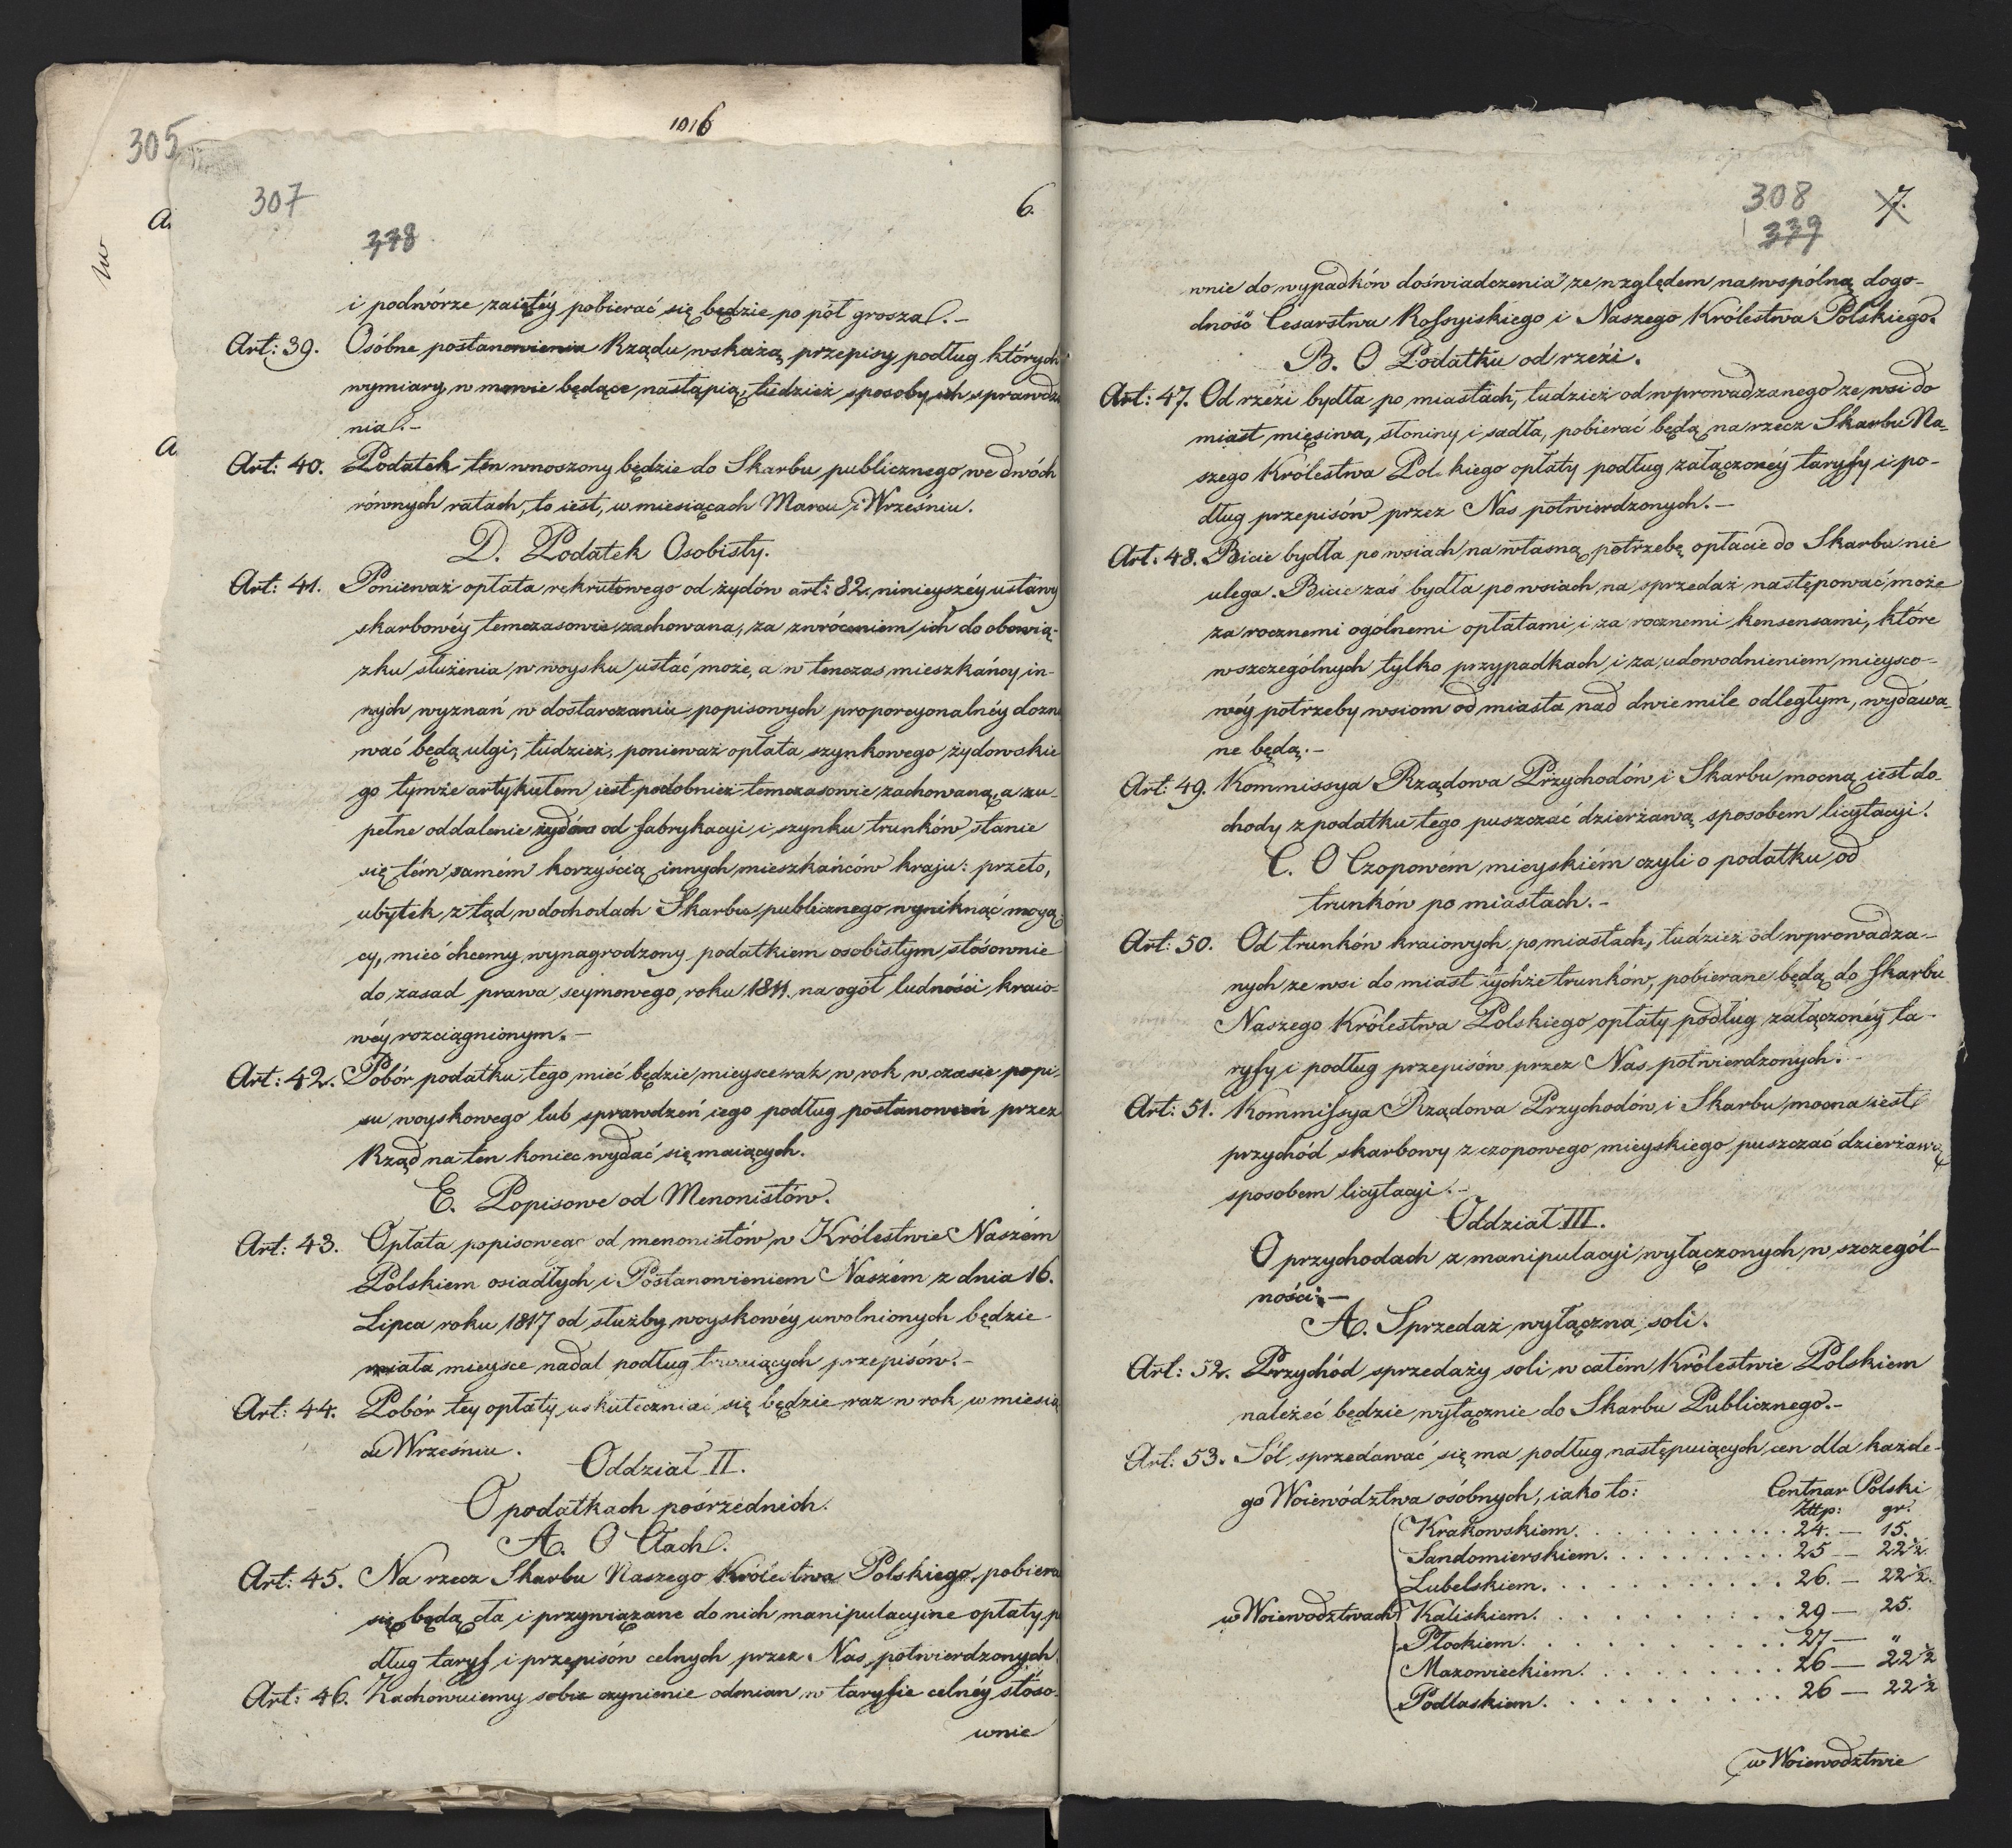 305
1016
307
6.
338
A.
w
A
i podwórze zaiętéy pobierać się będzie po pół grosza.–
Art: 39. Osóbne postanowienia Rządu wskażą przepisy podług których
wymiary w mowie będące nastąpią, tudzież sposoby ich sprawdze
nia.–
Art: 40. Podatek ten wnoszony będzie do Skarbu publicznego we dwóch
równych ratach, to iest, w miesiącach Marcu i Wrześniu.
D. Podatek Osobisty.
Art: 41. Ponieważ opłata rekrutowego od żydów art: 82. ninieyszéy ustawy
skarbowéy temczasowie zachowana, za zwróceniem ich do obowią-
zku służenia w woysku ustać może, a w tenczas mieszkańcy in-
nych wyznań w dostarczaniu popisowych proporcyonalnéy dozna
wać będą ulgi; tudzież, ponieważ opłata szynkowego żydowskie
go tymże artykułem iest podobnież temczasowie zachowaną, a zu-
pełne oddalenie żydów od fabrykacyi i szynku trunków stanie
się tém samém korzyścią innych mieszkańców kraju: przeto,
ubytek z tąd w dochodach Skarbu publicznego wyniknąć mogą-
cy, mieć chcemy wynagrodzony podatkiem osobistym stósownie
do zasad prawa seymowego roku 1811. na ogół ludności kraio-
wéy rozciągnionym.–
Art: 42. Pobór podatku tego mieć będzie mieysce raz w rok w czasie popi-
su woyskowego lub sprawdzeń iego podług postanowień przez
Rząd na ten koniec wydać się maiących.
E. Popisowe od Menonistów.
Art: 43. Opłata popisowego od menonistów w Królestwie Naszém
Polskiem osiadłych i Postanowieniem Naszém z dnia 16.
Lipca roku 1817 od służby woyskowéy uwolnionych będzie
miała mieysce nadal podług trwaiących przepisów.–
Art: 44. Pobór tey opłaty uskuteczniać się będzie raz w rok w miesią
cu Wrześniu.
Oddział II.
O podatkach pośrzednich.
A. O Cłach.
Art: 45. Na rzecz Skarbu Naszego Królestwa Polskiego, pobiera
się będą cła i przywiązane do nich manipulacyine opłaty, p
dług taryf i przepisów celnych przez Nas potwierdzonych
Art: 46. Zachowuiemy sobie czynienie odmian w taryfie celnéy stóso-
wnie
308
7.
339
wnie do wypadków doświadczenia ze względem na wspólną dogo-
dność Cesarstwa Rossyiskiego i Naszego Królestwa Polskiego.
B. O Podatku od rzeźi.
Art: 47. Od rzeźi bydła po miastach, tudzież od wprowadzanego ze wsi do
miast mięsiwa, słoniny i sadła, pobierać będą na rzecz Skarbu Na-
szego Królestwa Polskiego opłaty podług załączonéy taryfy i po-
dług przepisów przez Nas potwierdzonych.–
Art: 48. Bicie bydła po wsiach na własną potrzebę opłacie do Skarbu nie
ulega. Bicie zaś bydła po wsiach na sprzedaż następować może
za rocznemi ogólnemi opłatami i za rocznemi konsensami, które
w szczególnych tylko przypadkach i za udowodnieniem mieysco-
wéy potrzeby wsiom od miasta nad dwie mile odległym, wydawa-
ne będą.–
Art: 49. Kommissya Rządowa Przychodów i Skarbu mocną iest do-
chody z podatku tego puszczać dzierżawą sposobem licytacyi.
C. O Czopowém mieyskiém czyli o podatku od
trunków po miastach.–
Art: 50. Od trunków kraiowych po miastach, tudzież od wprowadza-
nych ze wsi do miast tychże trunków, pobierane będą do Skarbu
Naszego Królestwa Polskiego opłaty podług załączonéy ta-
ryfy i podług przepisów przez Nas potwierdzonych.–
Art: 51. Kommissya Rządowa Przychodów i Skarbu mocna iest
przychód skarbowy z czopowego mieyskiego puszczać dzierżawą
sposobem licytacyi.–
Oddział III.
O przychodach z manipulacyi wyłączonych w szczegól-
ności:–
A. Sprzedaż wyłączna soli.
Art: 52. Przychód sprzedaży soli w całém Królestwie Polskiem
należeć będzie wyłącznie do Skarbu Publicznego.–
Art: 53. Sól sprzedawać się ma podług następuiących cen dla każde-
go Woiewództwa osóbnych, iako to: Centnar Polski
Złtp: gr.
Krakowskiem. 24. – 15.
Sandomierskiem. 25 – 22½
Lubelskiem. 26. – 22½.
w Woiewodztwach Kaliskiem. 29 – 25.
Płockiem. 27 – "
Mazowieckiem. 26 – 22½
Podlaskiem. 26 – 22½
w Woiewodztwie